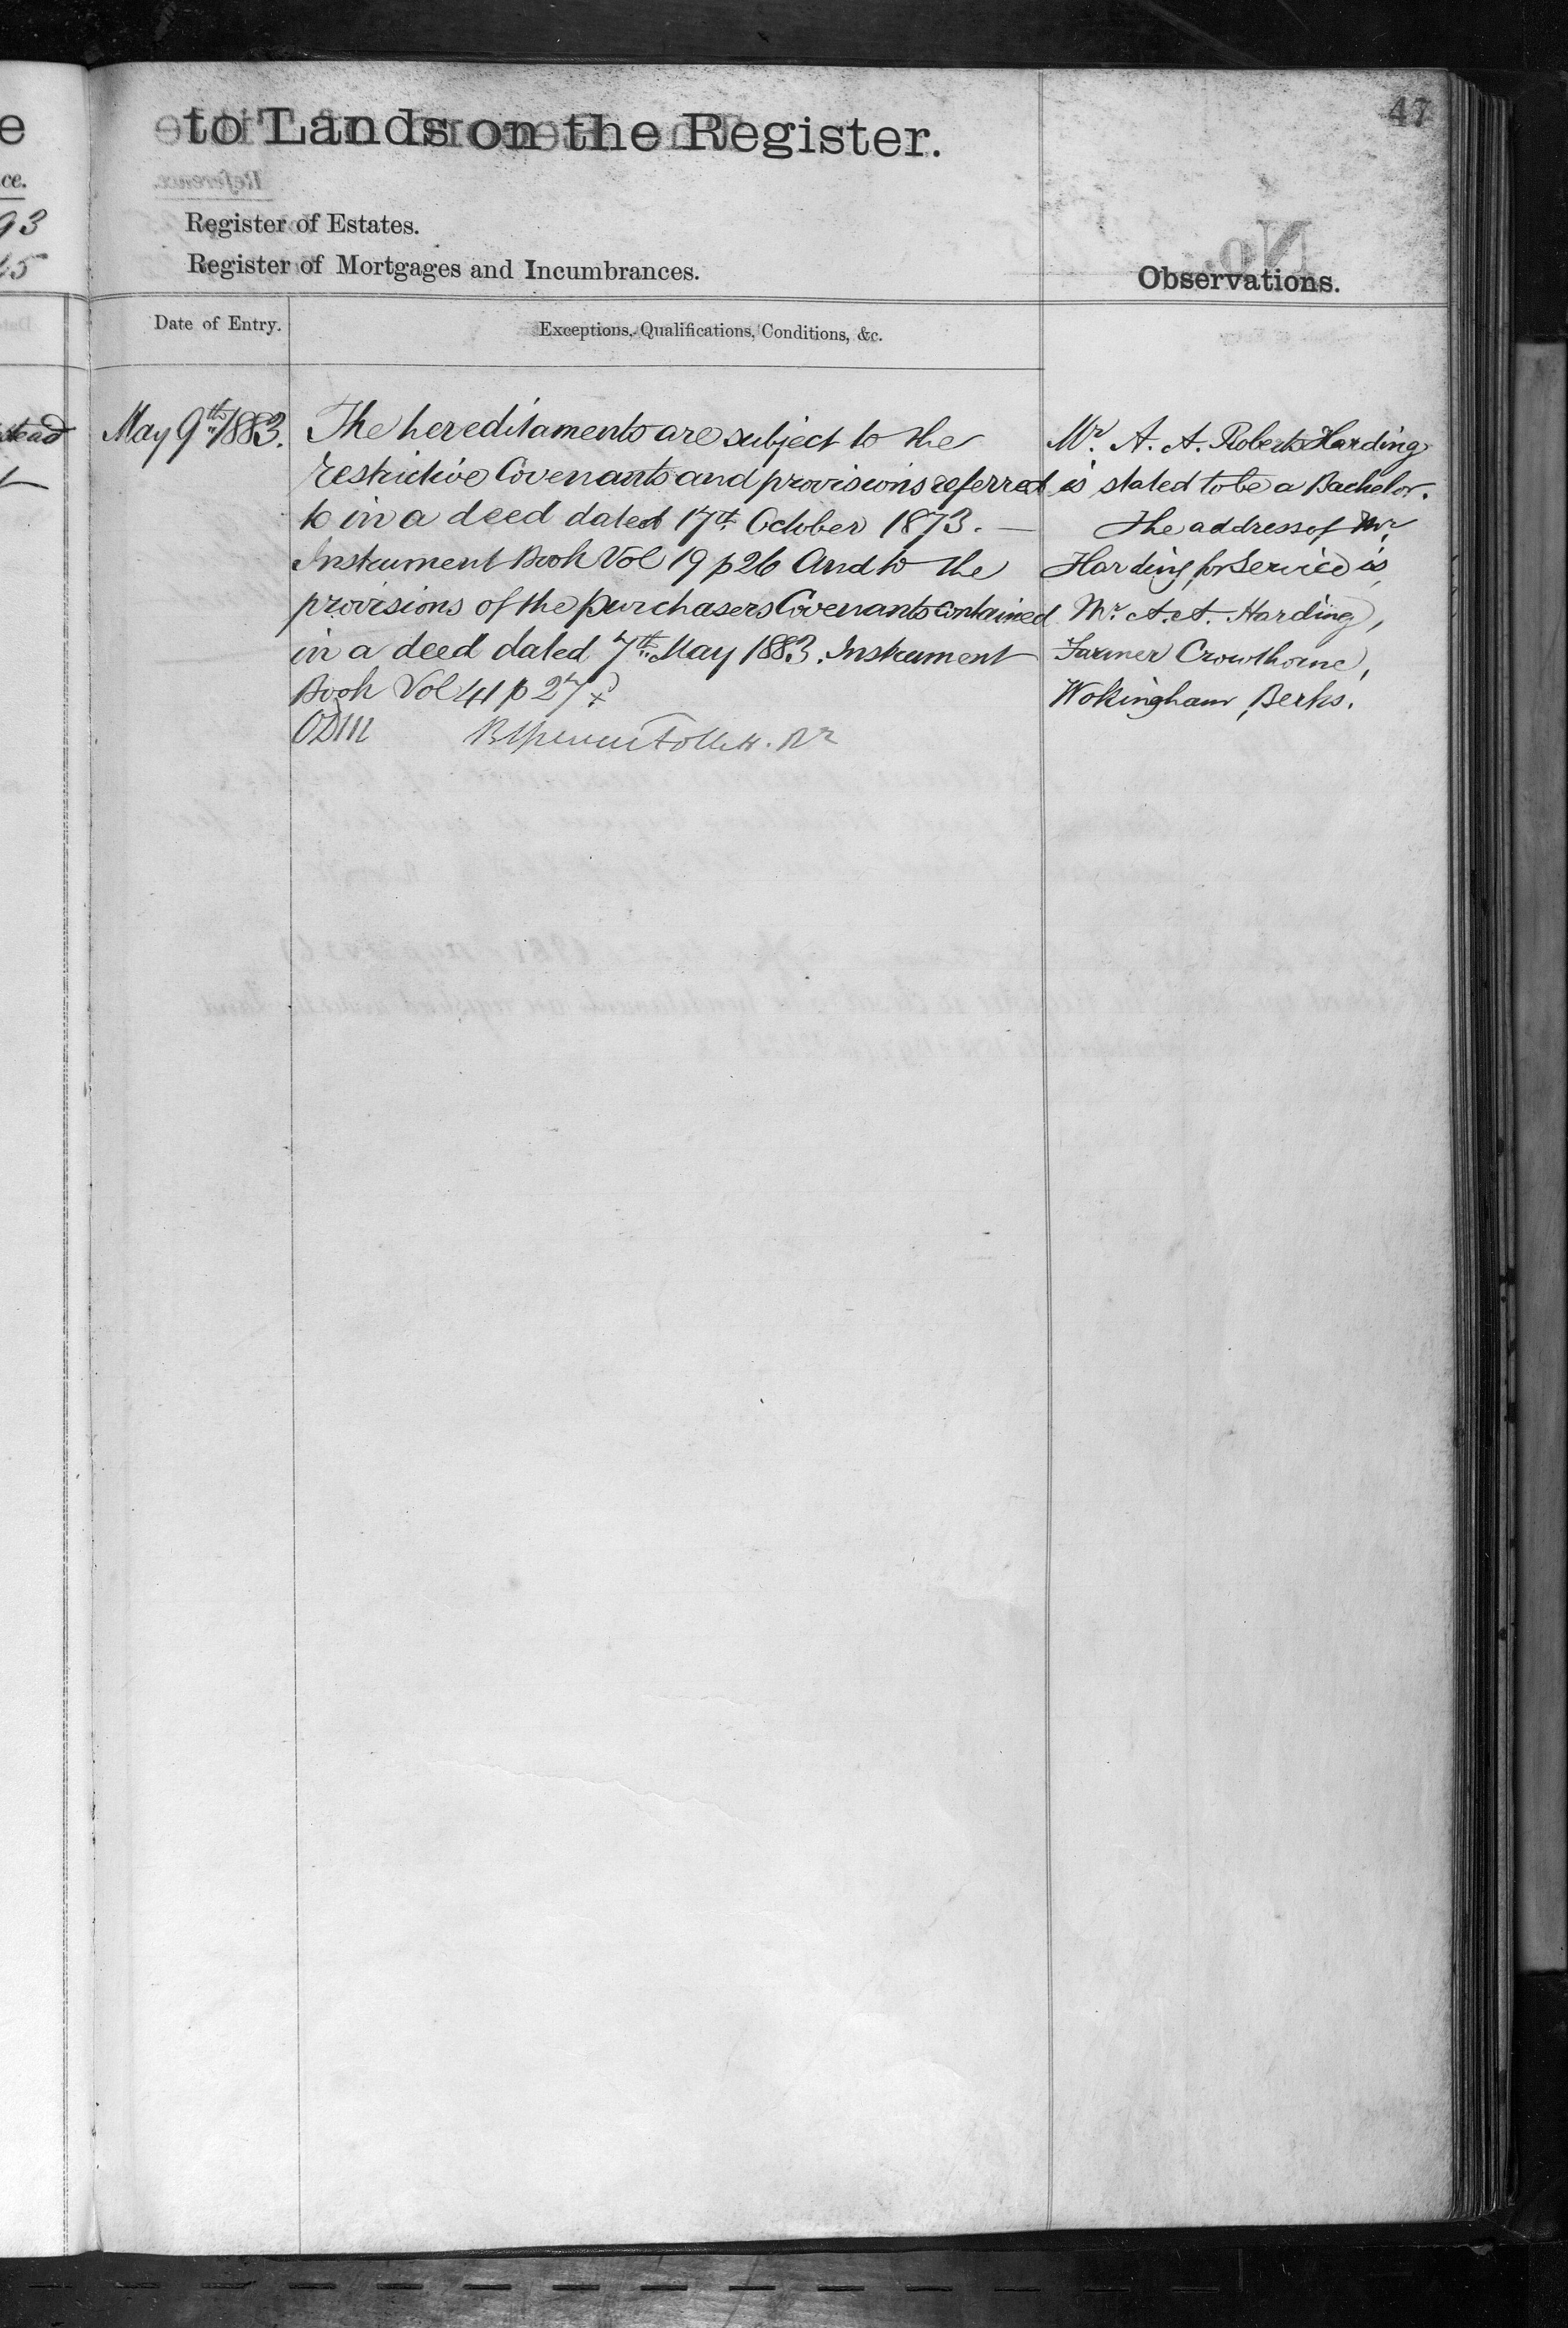 47
to Lands on the Register.
Register of Estates.
Register of Mortgages and Incumbrances.
Observations.
Date of Entry.
Exceptions, Qualifications, Conditions, &c.
May 9th 1883.
The hereditaments are subject to the
restrictive Covenants and provisions referred
to in a deed dated 17th October 1873. —
Instrument Book Vol 19 p 26 And to the
provisions of the purchasers Covenants contained
in a deed dated 7th May 1883. Instrument
Book Vol 41 p 27
Mr. A. A. Roberts Harding
is stated to be a Bachelor.
The address of Mr.
Harding for Service is
Mr. A. A. Harding,
Farmer Crowthorne,
Wokingham, Berks.
e
ce.
93